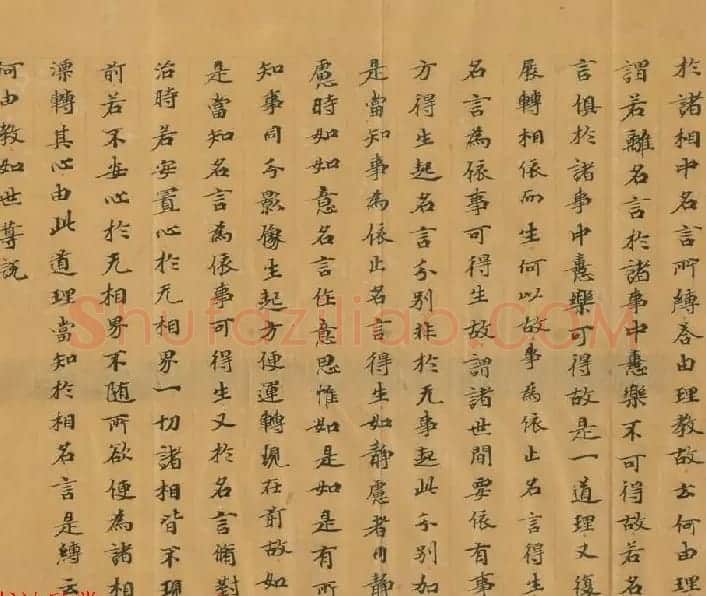 於諸相中名言所縛答由理教故云何由理
謂若離名言於諸事中憙樂不可得故若名
言俱於諸事中憙樂可得故是一道理又復
展轉相依而生何以故事為依止名言得生
名言為依事可得生故謂諸世間要依有事
方得生起名言分別非於无事起此分別如
是當知事為依止名言得生如靜慮者內靜
慮時如如意名言作意思惟如是如是有所
知事同分影像生起方便運轉現在前故如
是當知名言為依事可得生又於名言脩對
治時若安置心於无相界一切諸相皆不現
前若不安心於无相界不隨所欲便為諸相
漂轉其心由此道理當知於相名言是縛云
何由教如世尊說
Shufaziliao.COM